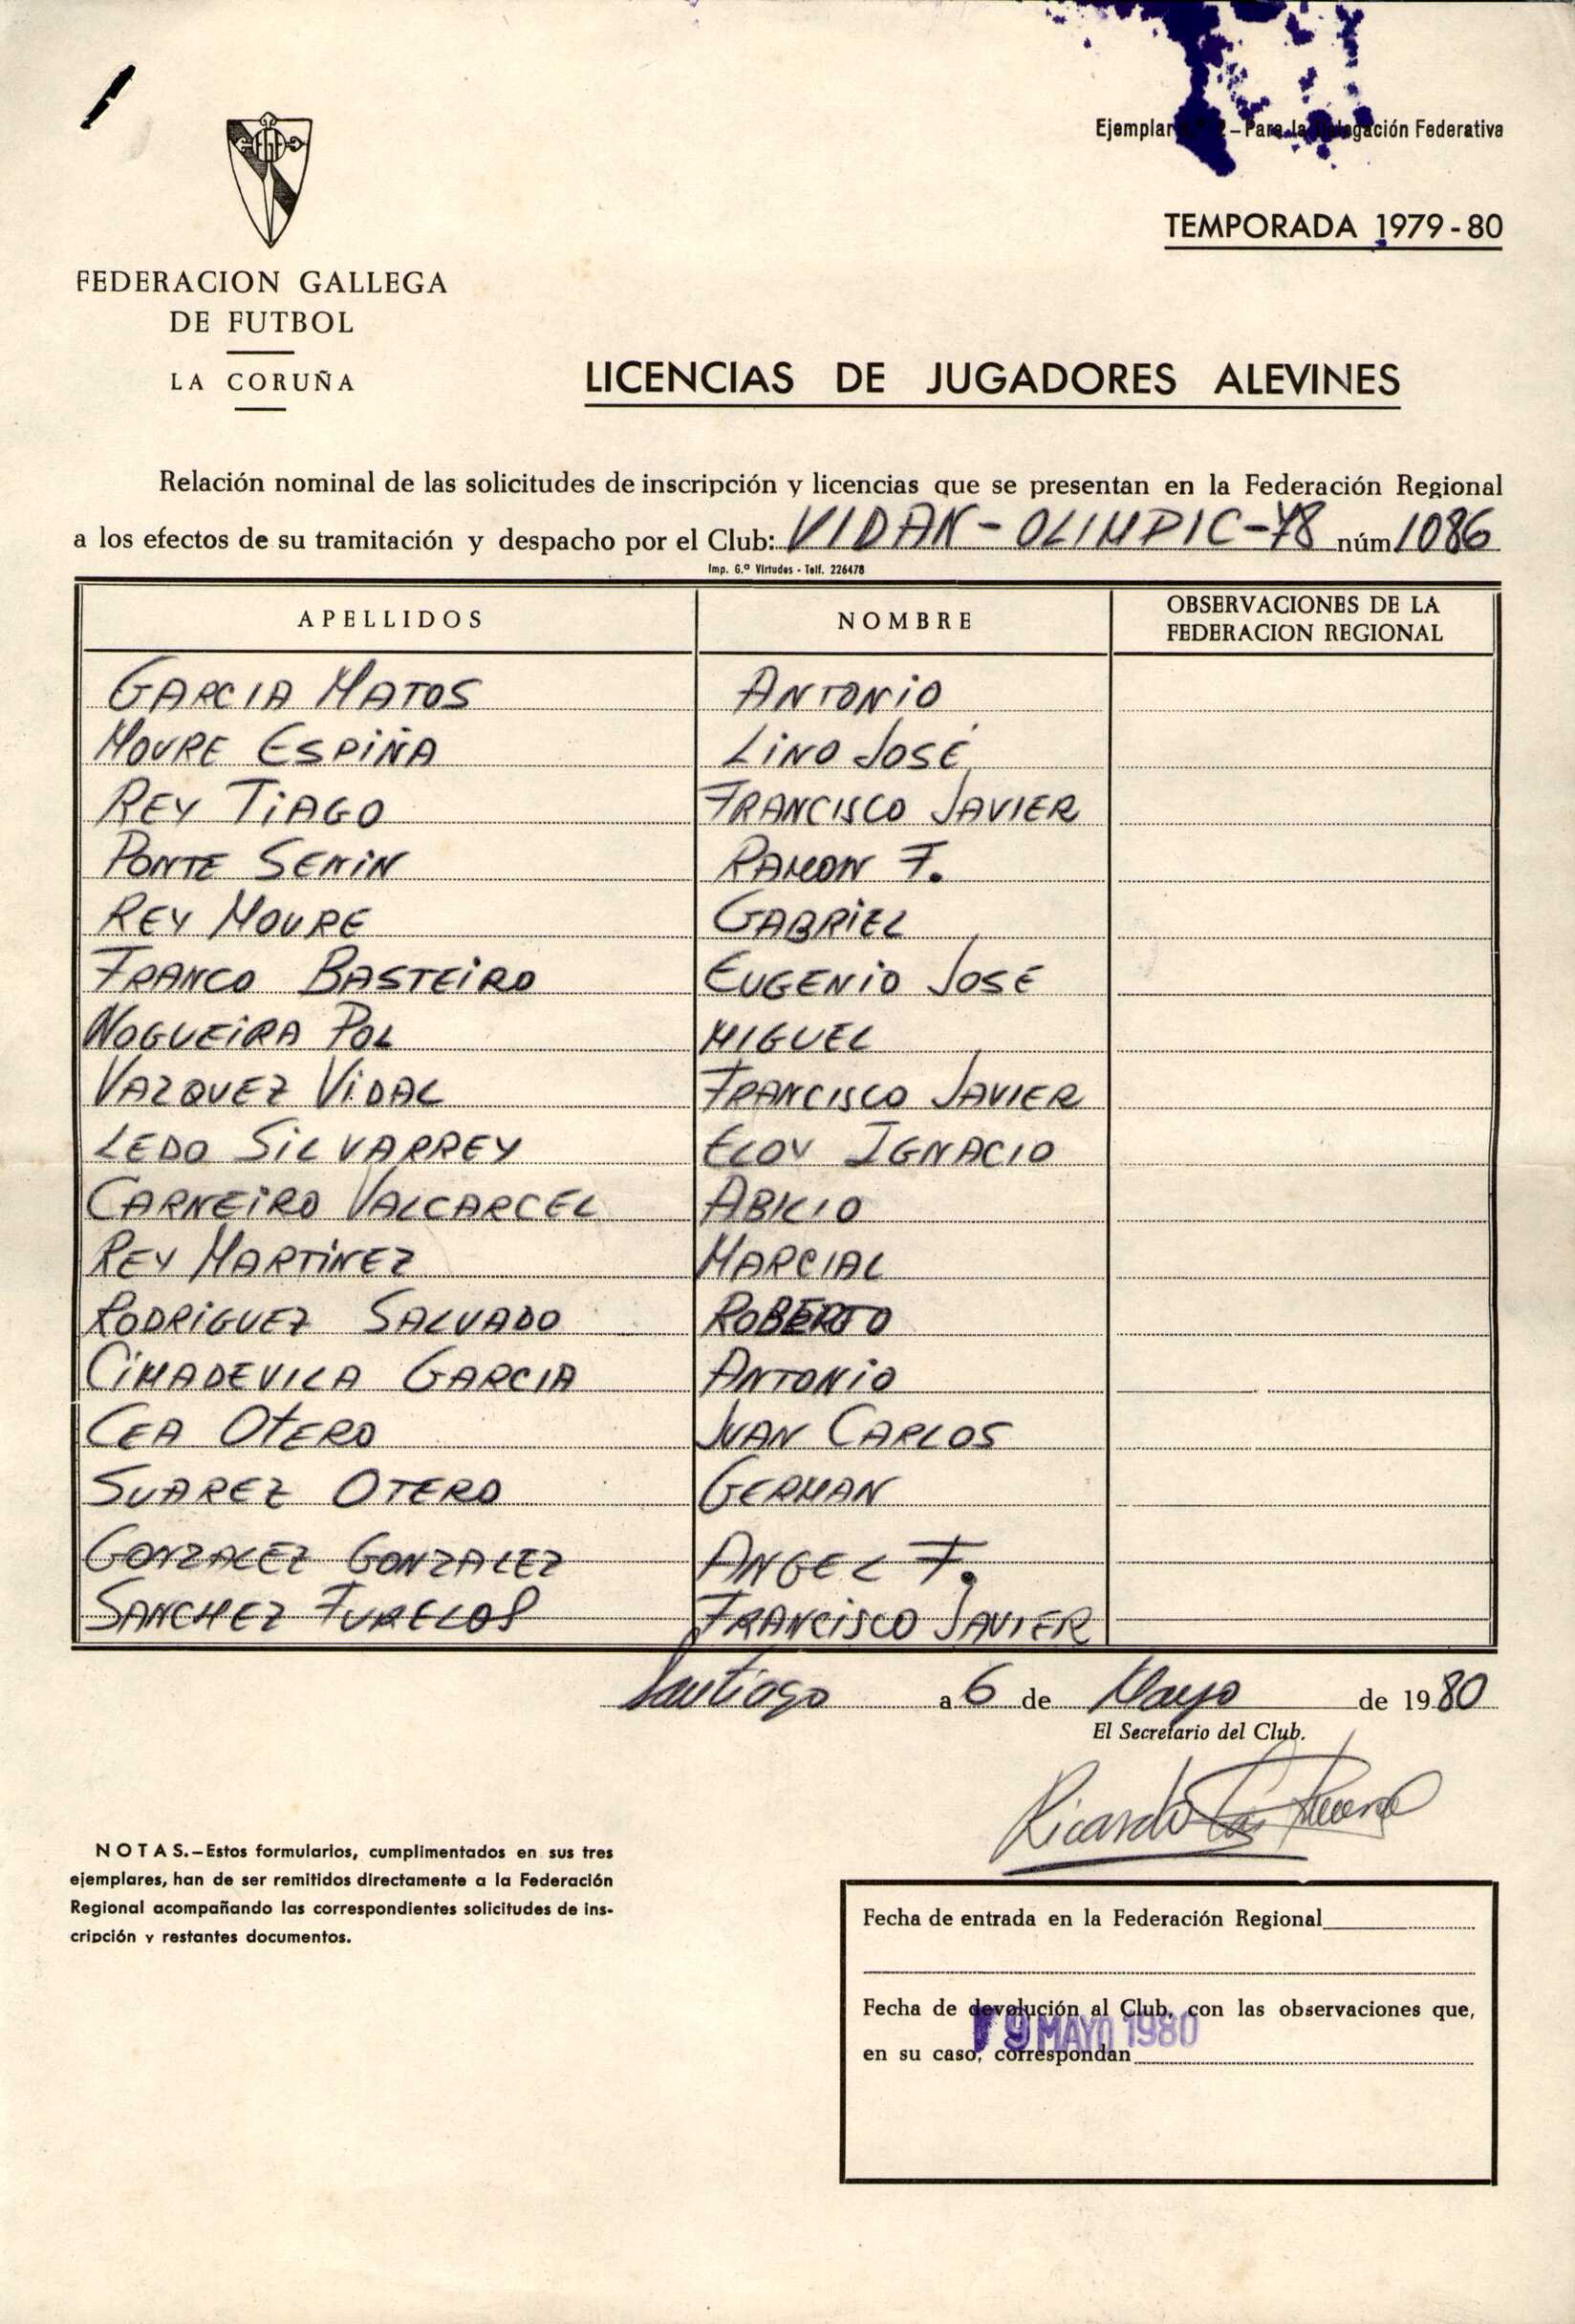 Ejemplar n.º 2 – Para la Delegación Federativa
TEMPORADA 1979 - 80
FEDERACION GALLEGA
DE FUTBOL
LA CORUÑA
LICENCIAS DE JUGADORES ALEVINES
Relación nominal de las solicitudes de inscripción y licencias que se presentan en la Federación Regional
a los efectos de su tramitación y despacho por el Club: VIDAN - OLIMPIC - 78 núm 1086
Imp. G.ª Virtudes - Telf. 226478
APELLIDOS NOMBRE OBSERVACIONES DE LA FEDERACION REGIONAL
GARCIA MATOS ANTONIO
MOURE ESPIÑA LINO JOSÉ
REY TIAGO FRANCISCO JAVIER
PONTE SENIN RAMON F.
REY MOURE GABRIEL
FRANCO BASTEIRO EUGENIO JOSE
NOGUEIRA POL MIGUEL
VAZQUEZ VIDAL FRANCISCO JAVIER
LEDO SILVARREY ELOY IGNACIO
CARNEIRO VALCARCEL ABILIO
REY MARTINEZ MARCIAL
RODRIGUEZ SALVADO ROBERTO
CIMADEVILA GARCIA ANTONIO
CEA OTERO JUAN CARLOS
SUAREZ OTERO GERMAN
GONZALEZ GONZALEZ ANGEL F.
SANCHEZ FURELOS FRANCISCO JAVIER
Santiago a 6 de Mayo de 1980
El Secretario del Club.
Ricardo
NOTAS.–Estos formularios, cumplimentados en sus tres
ejemplares, han de ser remitidos directamente a la Federación
Regional acompañando las correspondientes solicitudes de ins-
cripción y restantes documentos.
Fecha de entrada en la Federación Regional
Fecha de devolución al Club, con las observaciones que,
19 MAYO 1980
en su caso, correspondan